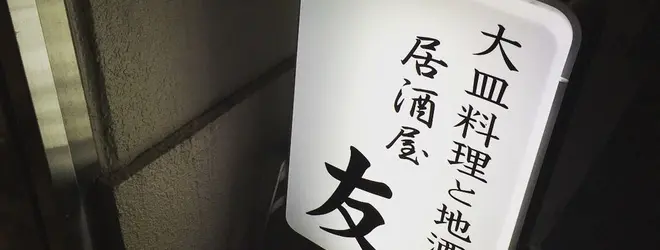 大皿料理と地酒
居酒屋
友